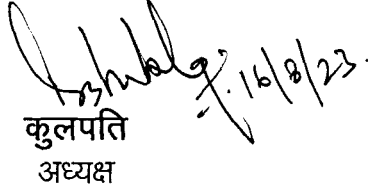 16/8/23.
कुलपति
अध्यक्ष